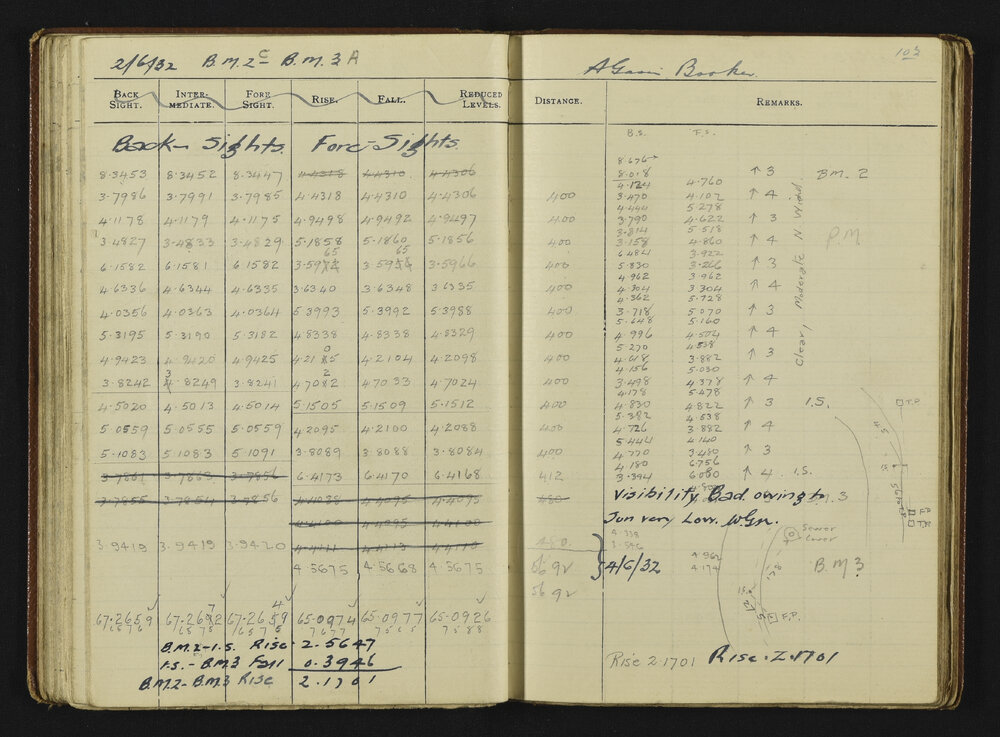 2/6/32 B.M.2 C – B.M.3 A
BACK SIGHT. INTER-MEDIATE. FORE SIGHT. RISE. FALL. REDUCED LEVELS.
Back-Sights. Fore-Sights.
8.3453 8.3452 8.3447 4.4318 4.4310 4.4306
3.7986 3.7991 3.7985 4.4318 4.4310 4.4306
4.1178 4.1179 4.1175 4.9498 4.9492 4.9497
3.4827 3.4833 3.4829 5.1858 5.1860 5.1856
6.1582 6.1581 6.1582 3.5965 3.5965 3.5966
4.6336 4.6344 4.6335 3.6340 3.6348 3.6335
4.0356 4.0363 4.0364 5.3993 5.3992 5.3988
5.3195 5.3190 5.3182 4.8338 4.8338 4.8329
4.9423 4.9420 4.9425 4.2105 4.2104 4.2098
3.8242 3.8249 3.8241 4.7022 4.7033 4.7024
4.5020 4.5013 4.5014 5.1505 5.1509 5.1512
5.0559 5.0555 5.0559 4.2095 4.2100 4.2088
5.1083 5.1083 5.1091 3.8089 3.8088 3.8084
6.4173 6.4170 6.4168
3.7855 3.7854 3.7856
3.9419 3.9419 3.9420
4.5675 4.5668 4.5675
67.2659 67.2672 67.2659 65.0974 65.0977 65.0926
B.M.2-I.S. Rise 2.5647
I.S.-B.M3 Fall 0.3946
B.M.2-B.M.3 Rise 2.1701
103
Booker.
DISTANCE. REMARKS.
B.S. F.S.
8.676
8.018 ↑ 3 B.M. 2
4.124 4.760
400 3.470 4.102 ↑ 4
4.444 5.278
400 3.790 4.622 ↑ 3
3.814 5.518
400 3.158 4.860 ↑ 4 P.M.
6.484 3.922
400 5.830 3.266 ↑ 3
4.962 3.962
400 4.304 3.304 ↑ 4
4.362 5.728
400 3.718 5.070 ↑ 3
5.648 5.160
400 4.996 4.504 ↑ 4
5.270 4.538
400 4.618 3.882 ↑ 3
4.156 5.030
400 3.498 4.378 ↑ 4
4.178 5.478
400 4.830 4.822 ↑ 3 I.S.
5.382 4.538
400 4.726 3.882 ↑ 4
5.444 4.140
400 4.770 3.480 ↑ 3
4.180 6.756
412 3.394 6.080 ↑ 4 I.S.
Clear, Moderate N. Wind.
T.P.
480 Visibility Bad. owing to
Sun very Low. WGn.
4.338
480. 3.546
5692 4/6/32 4.962
4.174 B.M 3
5692
Sewer
I.S.
F.P.
Rise 2.1701 Rise. 2.1701